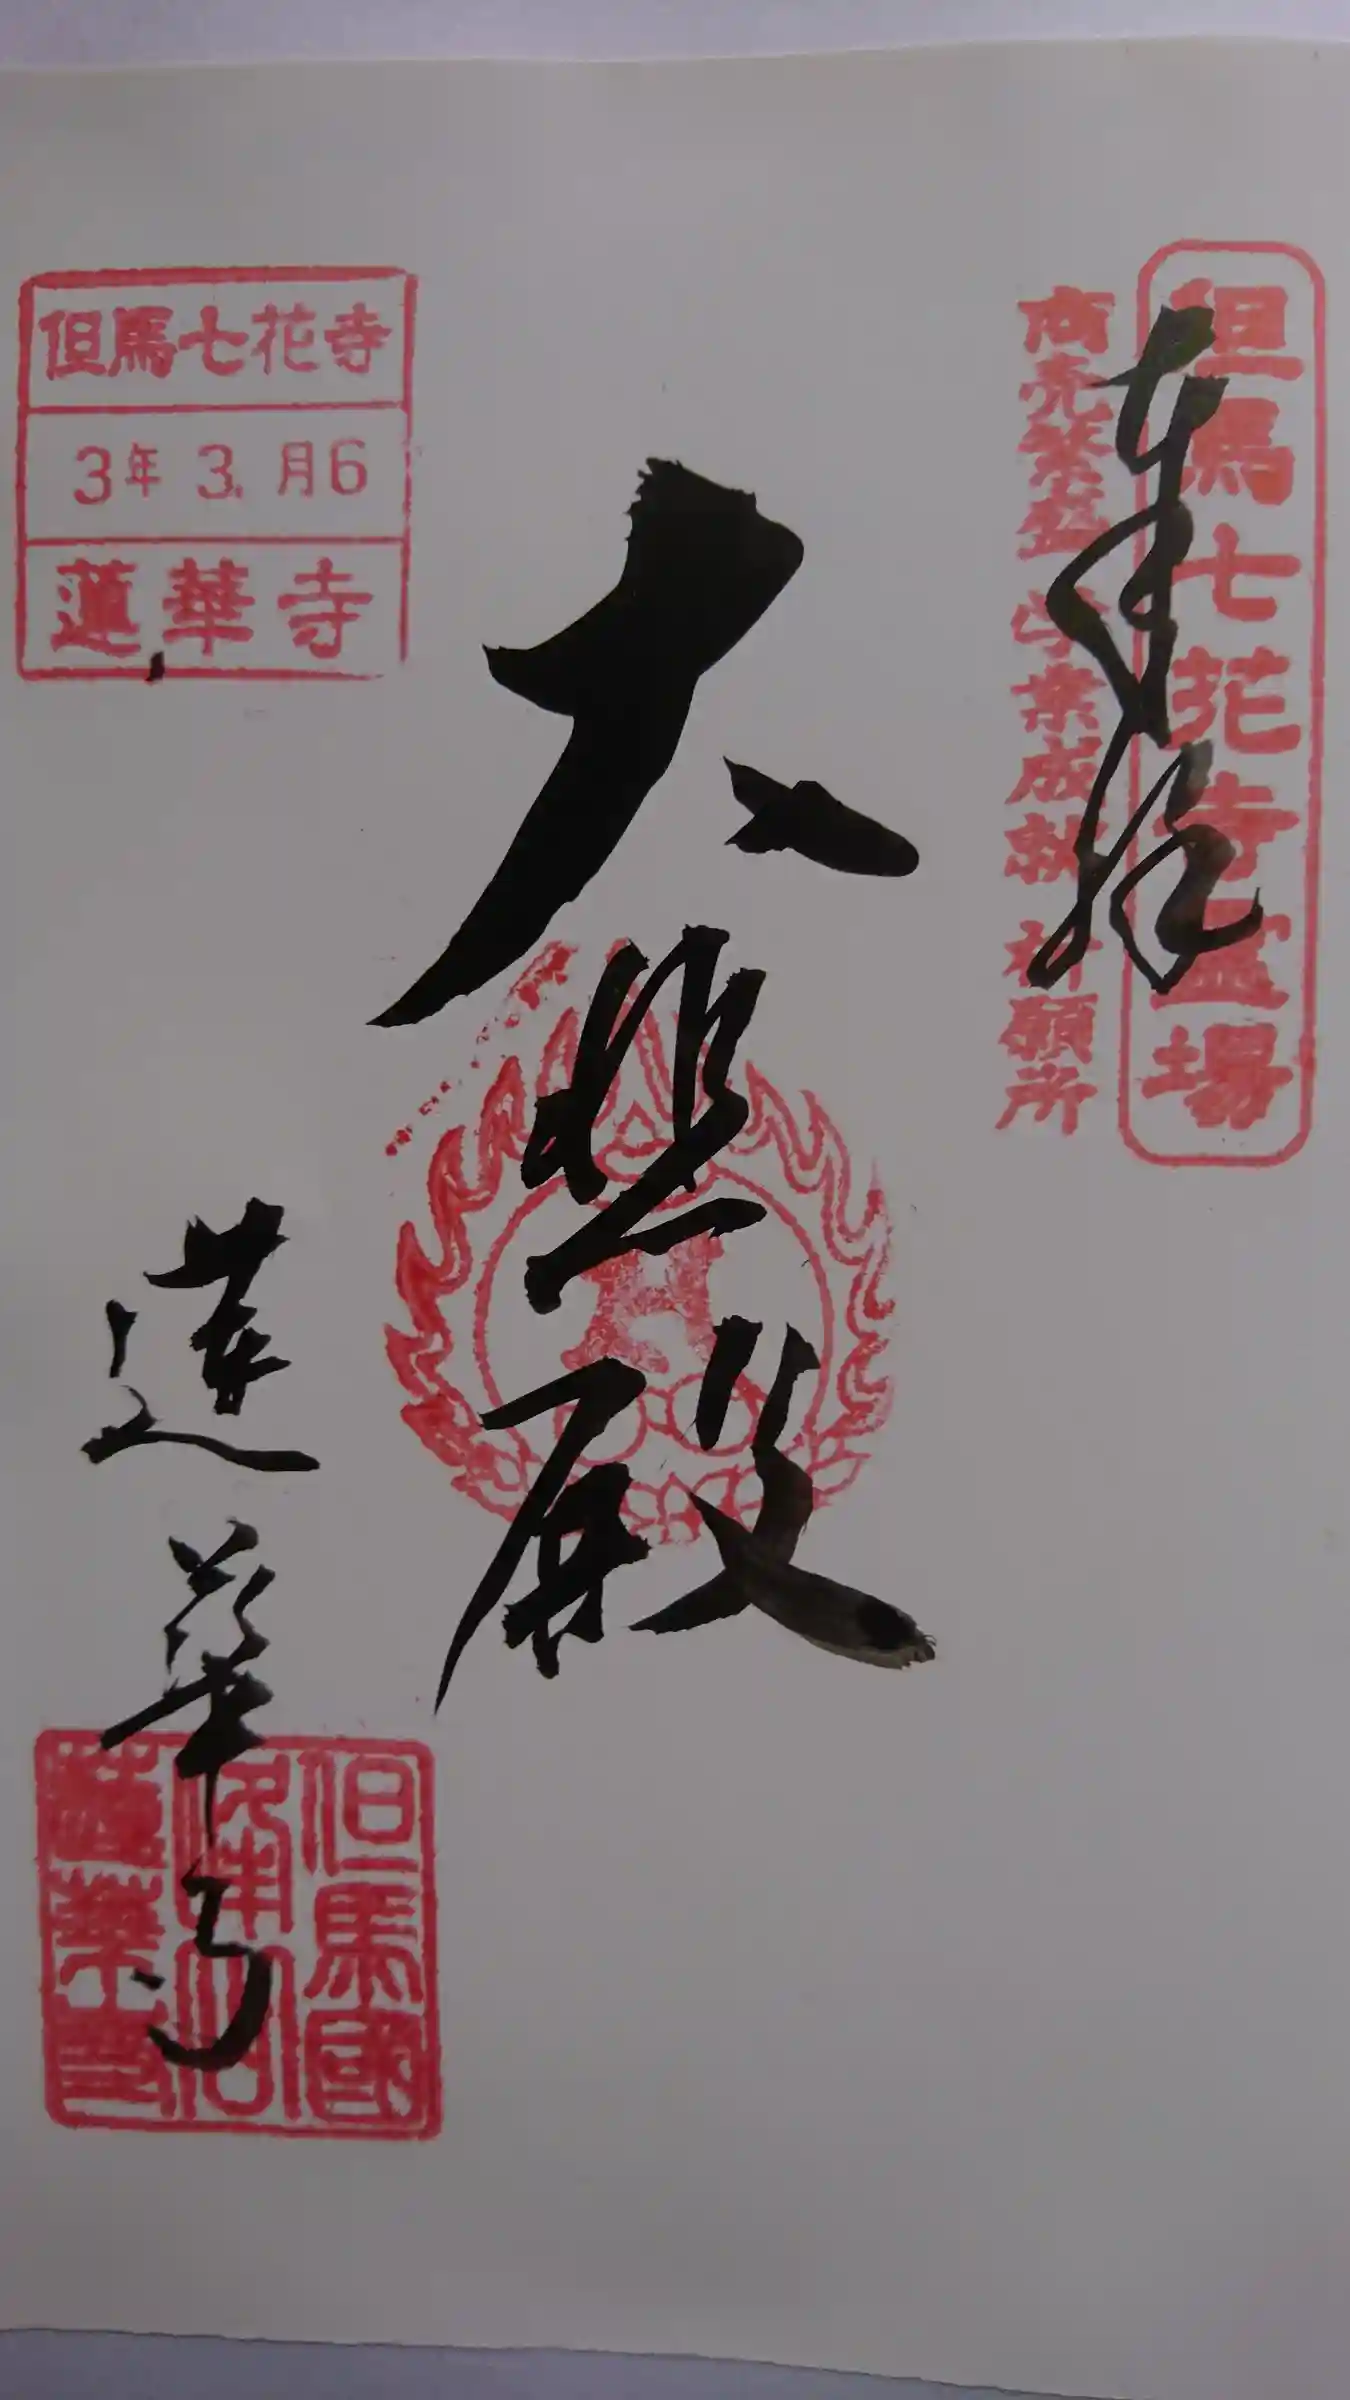 但馬七花寺霊場
奉拝
商売繁盛 学業成就 祈願所
大悲殿
但馬七花寺
3年 3. 月6
蓮華寺
蓮華寺
但馬國